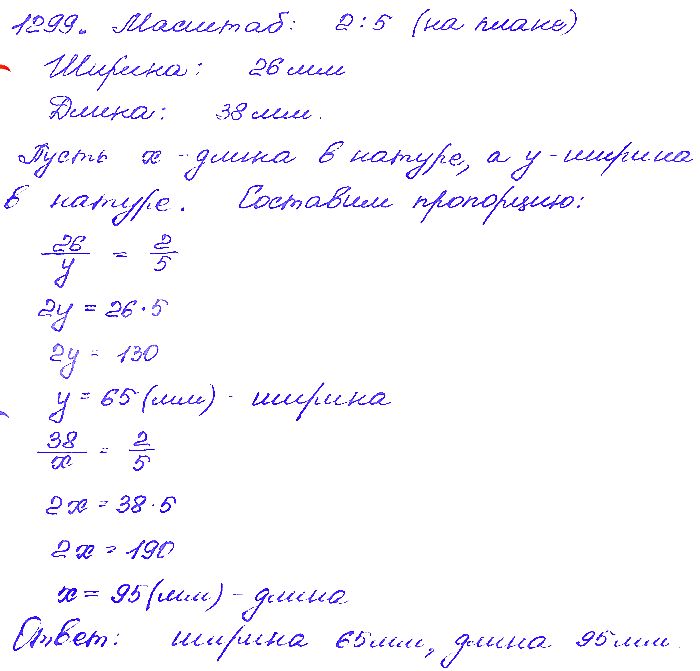 1299. Масштаб: 2:5 (на плане)
Ширина: 26 мм
Длина: 38 мм.
Пусть x - длина в натуре, а y - ширина
в натуре. Составим пропорцию:
26/y = 2/5
2y = 26·5
2y = 130
y = 65 (мм) - ширина
38/x = 2/5
2x = 38·5
2x = 190
x = 95 (мм) - длина
Ответ: ширина 65 мм, длина 95 мм.